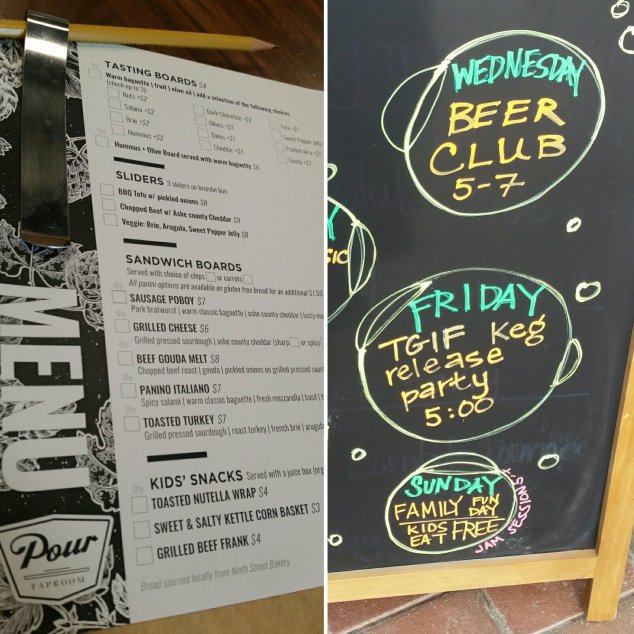 TASTING BOARDS $4
Warm baguette | fruit | olive oil | add a selection of the following choices
(check up to 3):
Nuts +$2
Salami +$2
Brie +$2
Hummus +$2
Dark Chocolate +$2
Olives +$1
Dates +$1
Cheddar +$1
Feta +$2
Sweet Pepper Jelly
Pickled okra +$1
Gouda +$1
Qty
Hummus + Olive Board served with warm baguette $6
SLIDERS 3 sliders on brioche bun
Qty
BBQ Tofu w/ pickled onions $8
Chopped Beef w/ Ashe county Cheddar $9
Veggie: Brie, Arugula, Sweet Pepper Jelly $8
SANDWICH BOARDS
Served with choice of chips or carrots
All panini options are available on gluten free bread for an additional $1.50
Qty
SAUSAGE POBOY $7
Pork bratwurst | warm classic baguette | ashe county cheddar |
Qty
GRILLED CHEESE $6
Grilled pressed sourdough | ashe county cheddar (sharp or spicy
Qty
BEEF GOUDA MELT $8
Chopped beef roast | gouda | pickled onions on grilled pressed
Qty
PANINO ITALIANO $7
Spicy salami | warm classic baguette | fresh mozzarella | basil |
Qty
TOASTED TURKEY $7
Grilled pressed sourdough | roast turkey | french brie |
KIDS' SNACKS Served with a juice box
Qty
TOASTED NUTELLA WRAP $4
SWEET & SALTY KETTLE CORN BASKET $3
GRILLED BEEF FRANK $4
Bread sourced locally from Ninth Street Bakery
MENU
Pour
TAPROOM
WEDNESDAY
BEER
CLUB
5-7
FRIDAY
TGIF Keg
release
party
5:00
SUNDAY
FAMILY FUN DAY
KIDS EAT FREE
JAM SESSIONS